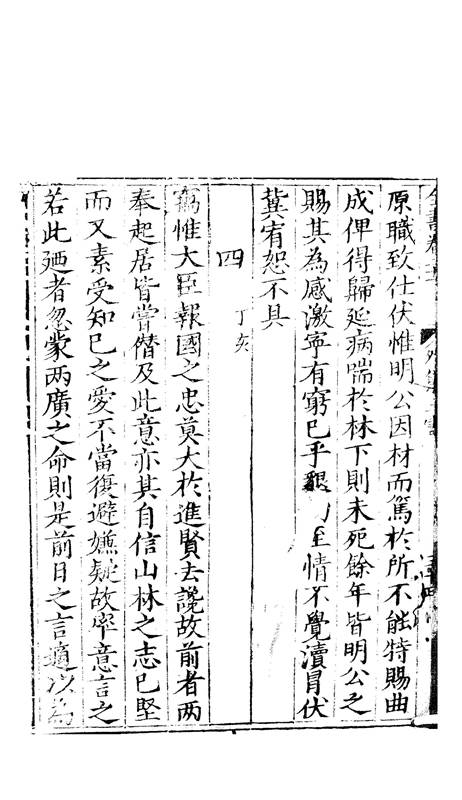 原職致仕伏惟明公因材而篤於所不能特賜曲
成俾得歸延病喘於林下則未死餘年皆明公之
賜其為感激寧有窮已乎懇 至情不覺瀆冒伏
冀宥恕不具
四
丁亥
竊惟大臣報國之忠莫大於進賢去讒故前者兩
奉起居皆嘗僭及此意亦其自信山林之志已堅
而又素受知己之愛不當復避嫌疑故率意言之
若此廼者忽蒙兩廣之命則是前日之言適以為